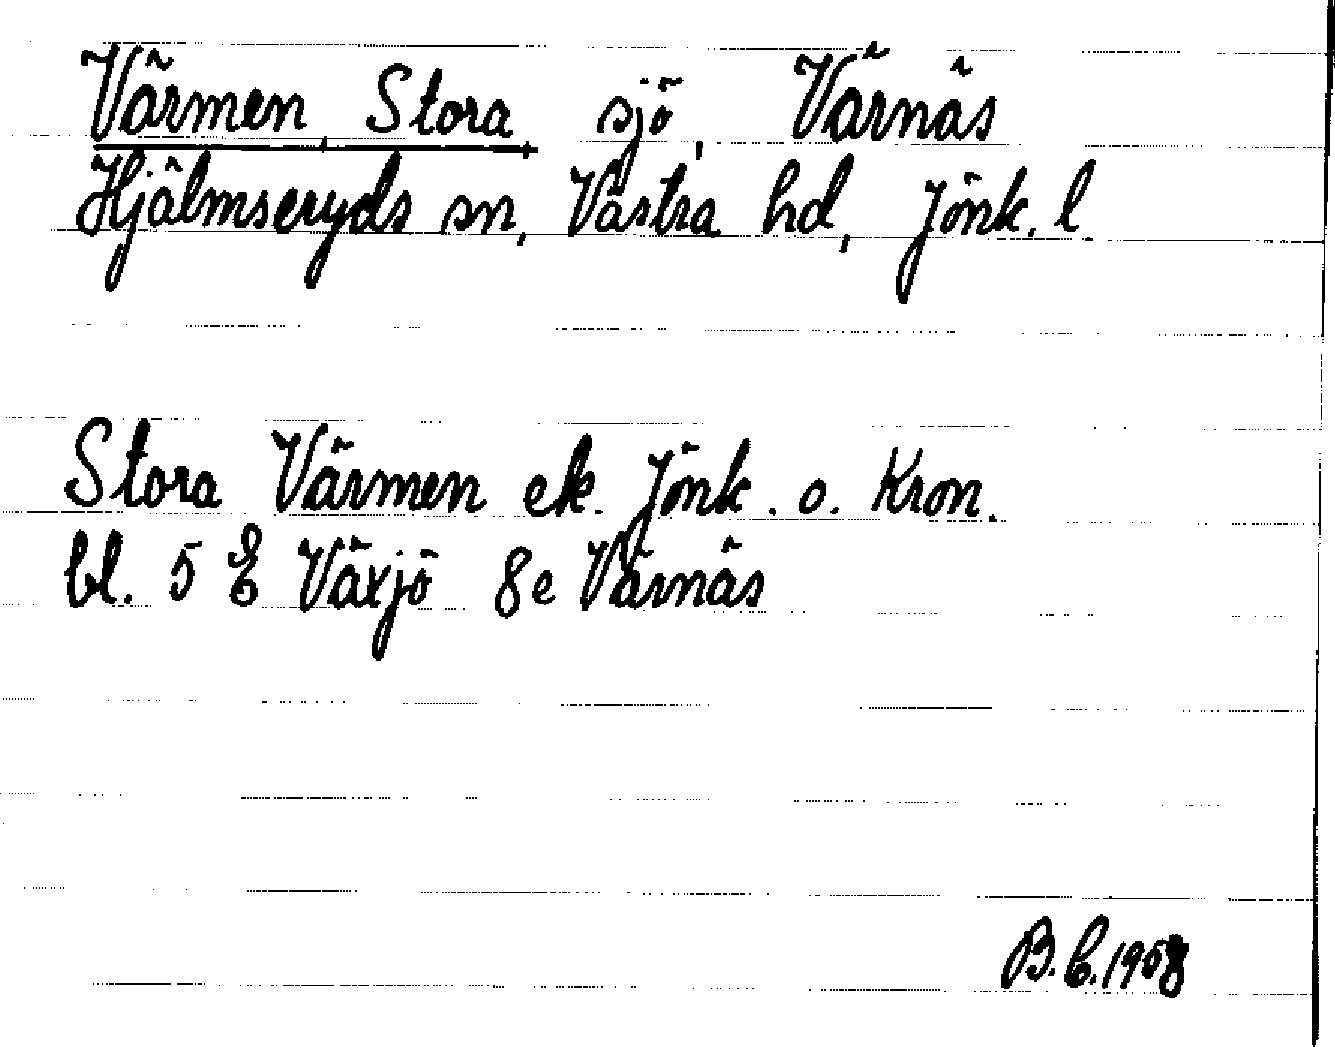 Värmen, Stora, sjö, Värnäs
Hjälmseryds sn, Västra hd, Jönk. l
Stora Värmen ek. Jönk. o. Kron.
bl. 5 E Växjö 8e Värnäs
B.C. 1958